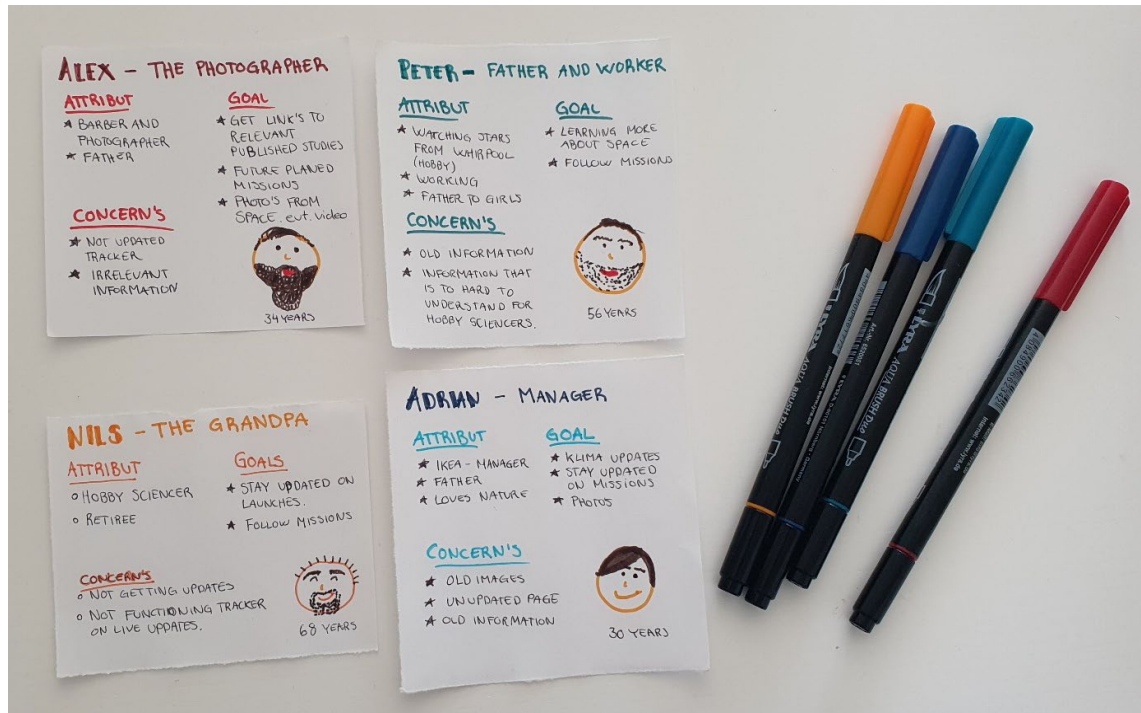 ALEX - THE PHOTOGRAPHER
ATTRIBUT
★ BARBER AND
PHOTOGRAPHER
★ FATHER
GOAL
★ GET LINK'S TO
RELEVANT
PUBLISHED STUDIES
★ FUTURE PLANED
MISSIONS
★ PHOTO'S FROM
SPACE. evt. video
CONCERN'S
★ NOT UPDATED
TRACKER
★ IRRELEVANT
INFORMATION
34 YEARS
PETER - FATHER AND WORKER
ATTRIBUT
★ WATCHING STARS
FROM WHIRPOOL
(HOBBY)
★ WORKING
★ FATHER TO GIRLS
GOAL
★ LEARNING MORE
ABOUT SPACE
★ FOLLOW MISSIONS
CONCERN'S
★ OLD INFORMATION
★ INFORMATION THAT
IS TO HARD TO
UNDERSTAND FOR
HOBBY SCIENCERS.
56 YEARS
NILS - THE GRANDPA
ATTRIBUT
o HOBBY SCIENCER
o RETIREE
GOALS
★ STAY UPDATED ON
LAUNCHES.
★ FOLLOW MISSIONS
CONCERN'S
o NOT GETTING UPDATES
o NOT FUNCTIONING TRACKER
ON LIVE UPDATES.
68 YEARS
ADRIAN - MANAGER
ATTRIBUT
★ IKEA - MANAGER
★ FATHER
★ LOVES NATURE
GOAL
★ KLIMA UPDATES
★ STAY UPDATED
ON MISSIONS
★ PHOTOS
CONCERN'S
★ OLD IMAGES
★ UNUPDATED PAGE
★ OLD INFORMATION
30 YEARS
LYRA AQUA BRUSH DUO
AQUA BRUSH DUO